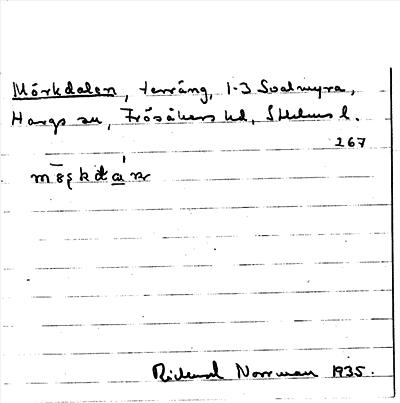 Mörkdalen, terräng, 1-3 Svalmyra,
Hargs sn, Frösåkers hd, Sthlms l.
267
Rickard Norrman 1935.